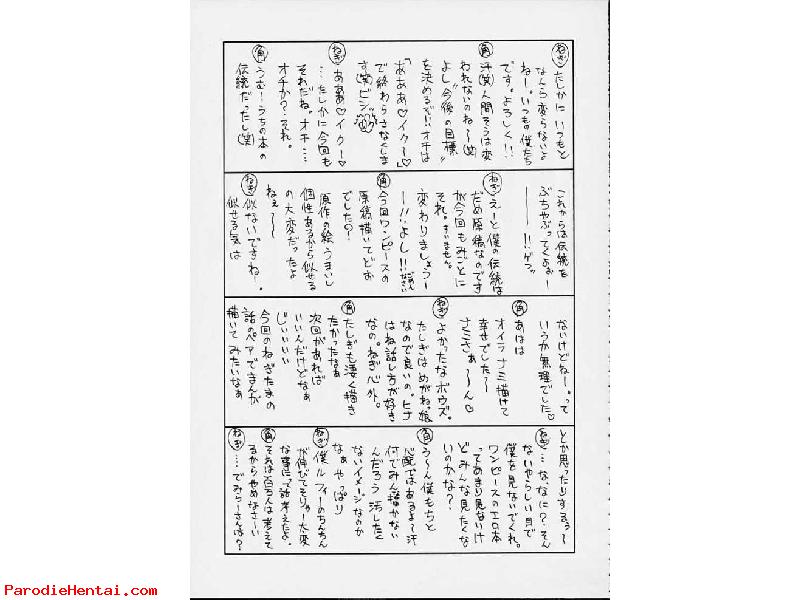 ねぎ たしかにいつもと
なんら変らないよ
ねー。いつもの僕たち
です。よろしく!!
角 汗(笑)人間そうは変
われないのね〜(笑)
よし"今後の目標"
を決めるぞ!!オチは
「あああ♡イクー♡」
で終わらさなくしま
す(笑)ビシッ
ねぎ あああ♡イクー♡
…たしかに今回も
それだね。オチ…
オチか?それ。
角 うむ!うちの本の
伝統だったし(笑)
これからは伝統を
ぶちゃぶってくぉぉー
ーーー!!ゲフッ
ねぎ えーと僕の伝統は
だめ原稿なのです
が今回もみごとに
それ。すいません。
変わりましょうー
ー!!よし!!ごめんなさい
角 今回ワンピースの
原稿描いてどお
でした?
原作の絵うまいし
個性あるから似せる
の大変だったよ
ねぇ〜〜
ねぎ 似ないですねー。
似せる気は
ないけどねー。って
いうか無理でした♡
角 あはは
オイラナミ描けて
幸せでした〜
ナミさぁ〜〜ん♡
ねぎ よかったなボウズ。
たしぎはめがね娘
なので良いの。ヒナ
はね話し方が好き
なの。ねぎ心外。
角 たしぎも凄く描き
たかったなぁ
次回があれば
いいんだけどなぁ
じぃぃぃぃ
今回のねぎたまの
話のペアでまんが
描いてみたいなぁ
とか思ったりするぅ〜
ねぎ …な、なに?そん
ないやらしい目で
僕を見ないでくれ。
ワンピースのエロ本
ってあまり見ないけ
どみんな見たくな
いのかな?
角 う〜ん僕もちと
心配ではあるよ汗
何でみんな描かない
んだろう 汚したく
ないイメージなのか
なぁやっぱり
ねぎ 僕ルフィーのちんちん
が伸びてそりゃー大変
な事に。って話考えたよ。
角 それは百人は考えて
るからやめなさーい
ねぎ …でみらーさんは?
ParodieHentai.com